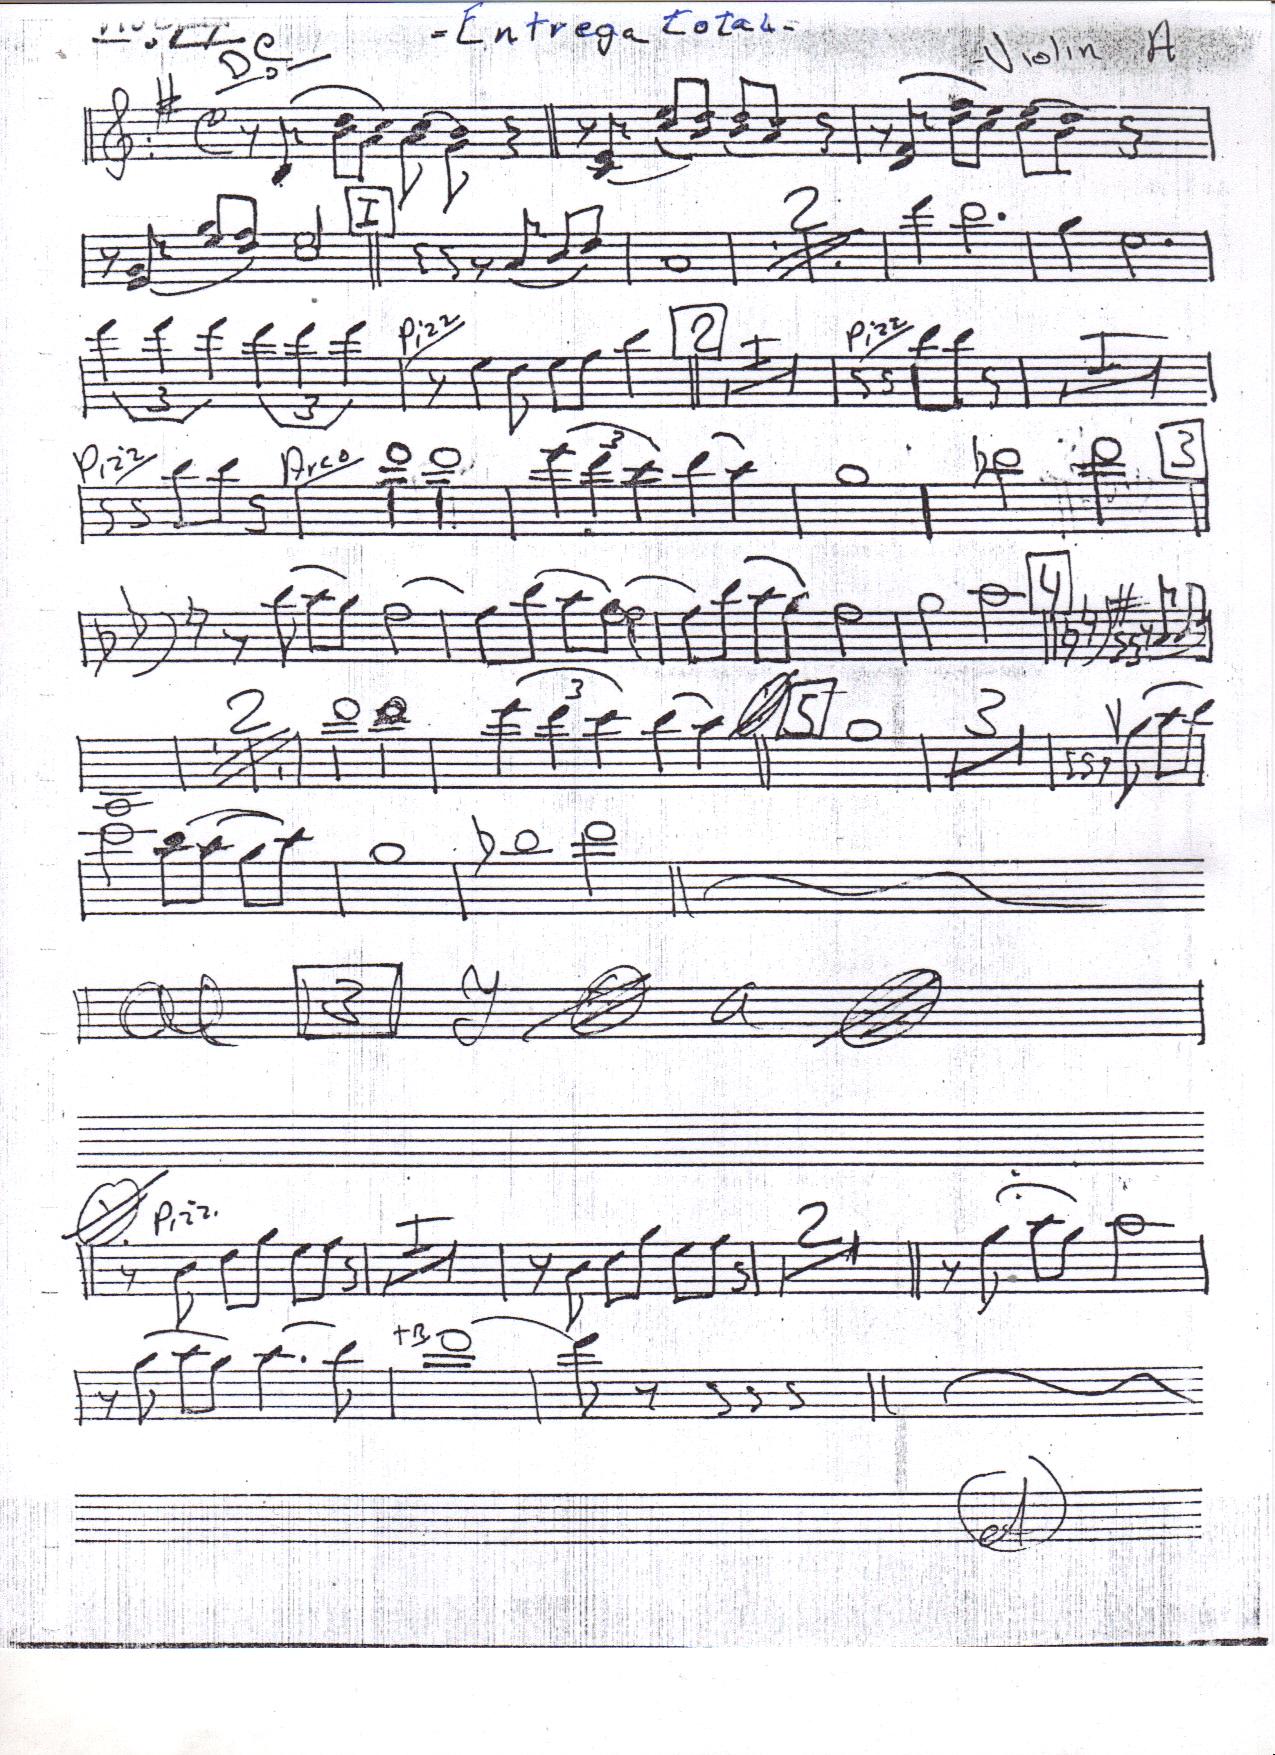 -Entrega total-
-Violin A
I
2
3 3 Pizz 2 I Pizz I
Pizz Arco 3 3
4
2 3 5 3
al 3 y a
Pizz. I 2